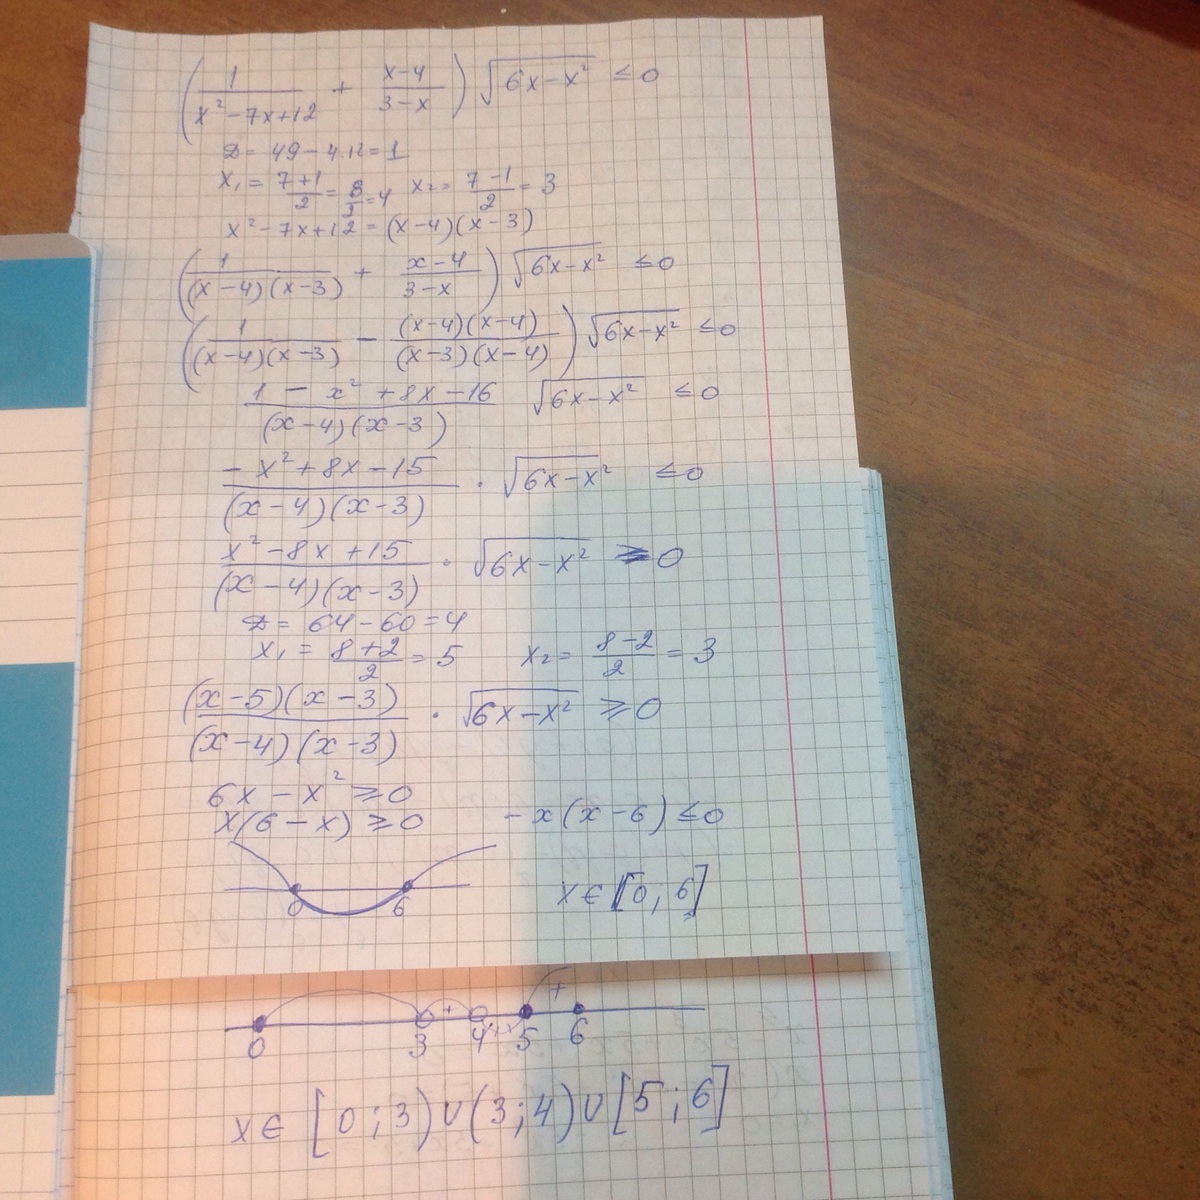 (1/(x²-7x+12) + (x-4)/(3-x)) √(6x-x²) ≤0
D= 49-4·12=1
x₁ = (7+1)/2 = 8/2 =4 x₂= (7-1)/2 = 3
x²-7x+12=(x-4)(x-3)
(1/((x-4)(x-3)) + (x-4)/(3-x)) √(6x-x²) ≤0
(1/((x-4)(x-3)) - ((x-4)(x-4))/((x-3)(x-4))) √(6x-x²) ≤0
(1-x²+8x-16)/((x-4)(x-3)) √(6x-x²) ≤0
(-x²+8x-15)/((x-4)(x-3)) · √(6x-x²) ≤0
(x²-8x+15)/((x-4)(x-3)) · √(6x-x²) ≥0
D= 64-60=4
x₁ = (8+2)/2 = 5 x₂= (8-2)/2 = 3
((x-5)(x-3))/((x-4)(x-3)) · √(6x-x²) ≥0
6x-x²≥0
x(6-x)≥0 -x(x-6)≤0
0 6 x∈[0,6]
+ +
0 3 4 5 6
x∈ [0;3)∪(3;4)∪[5;6]